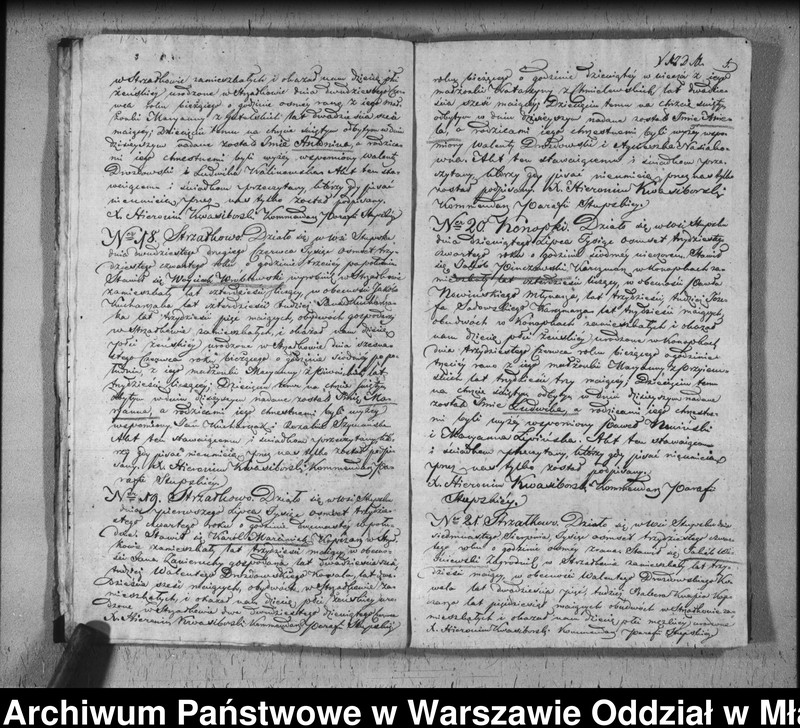 w Strzałkowie zamieszkałych i okazał nam dziecię płci
żeńskiej urodzone w Strzałkowie dnia dwudziestego
roku bieżącego o godzinie osmej rano z jego mał
żonki Maryanny z lat dwadzieścia sześć
mającej; Dziecięciu temu na chrzcie świętym odbytym w dniu
dzisiejszym nadane zostało Imie Antonina, a rodzica
mi jego chrzestnemi byli wyżej wspomniony Walenty
Drozdowski i Ludwika Kalinowska Akt ten sta
wającemu i świadkom przeczytany, którzy gdy pisać
nieumieją przez nas tylko został podpisany.
X. Hieronim Kwasiborski Kommendarz Parafii Stupskiej
Nro 18. Strzałkowo. Działo się we Wsi Stupsku
dnia dwudziestego Czerwca Tysiąc osmset trzy
dziestego czwartego roku o godzinie trzeciej po południu
Stawił się Woyciech wyrobnik w Strzałkowie
zamieszkały lat czterdzieści liczący, w obecności Jakóba
Kucharzaka lat czterdzieści tudzież Jana Kucharza
ka lat trzydzieści pięć mających, obydwóch gospodarzy
w Strzałkowie zamieszkałych, i okazał nam dziecię
płci żeńskiej urodzone w Strzałkowie dnia szesna
stego Czerwca roku bieżącego o godzinie siódmej po po
łudniu, z jego małżonki Maryanny z lat
trzydzieści liczącej; Dziecięciu temu na chrzcie świętym
odbytym w dniu dzisiejszym nadane zostało Imie Ma
ryanna, a rodzicami jego chrzestnemi byli wyżej
wspomniony Jan Kucharzak i Rozalia Szymańska
Akt ten stawającemu i świadkom przeczytany, któ
rzy gdy pisać nieumieją przez nas tylko został podpi
sany. X. Hieronim Kwasiborski Kommendarz Pa
rafii Stupskiej
Nro 19. Strzałkowo. Działo się we Wsi Stupsku
dnia pierwszego Lipca Tysiąc osmset trzydzie
stego czwartego roku o godzinie dwunastej w połu
dnie. Stawił się Karol Marciniak w Strzał
kowie zamieszkały lat trzydzieści mający, w obecno
ści Jana gospodarza lat dwadzieścia sześć,
tudzież Walentego Drozdowskiego Kowala, lat dwa
dzieścia sześć mających, obydwóch w Strzałkowie za
mieszkałych, i okazał nam dziecię płci żeńskiej uro
dzone w Strzałkowie dnia dwudziestego dziewiątego Czerwca
X. Hieronim Kwasiborski Kommendarz Parafii Stupskiej
roku bieżącego o godzinie dziewiątej w wieczór z jego
małżonki Katarzyny z Chmielewskich lat dwadzie
ścia sześć mającej; Dziecięciu temu na chrzcie świętym
odbytym w dniu dzisiejszym nadane zostało Imie Aniela
a rodzicami jego chrzestnemi byli wyżej wspo
mniony Walenty Drozdowski i Agnieszka
Akt ten stawającemu i świadkom prze
czytany, którzy gdy pisać nieumieją, przez nas tylko
został podpisany. X. Hieronim Kwasiborski
Kommendarz Parafii Stupskiej.
Nro 20. Konopki. Działo się we Wsi Stupsku
dnia dziewiątego Lipca Tysiąc osmset trzydziestego
czwartego roku o godzinie siódmej wieczorem. Stawił
się Jakób Karczmarz w Konopkach za
mieszkały lat czterdzieści liczący, w obecności Pawła
Newińskiego Młynarza, lat trzydzieści, tudzież Józe
fa Sadowskiego lat trzydzieści mających,
obudwóch w Konopkach zamieszkałych i okazał
nam dziecię płci żeńskiej urodzone w Konopkach
dnia trzydziestego Czerwca roku bieżącego o godzinie
trzeciej rano z jego małżonki Maryanny
lat trzydzieści trzy mającej; Dziecięciu temu
na chrzcie świętym odbytym w dniu dzisiejszym nadane
zostało Imie Ludwika, a rodzicami jego chrzestne
mi byli wyżej wspomniony Paweł Newiński
i Maryanna Lipińska. Akt ten stawającemu
i świadkom przeczytany, którzy gdy pisać nieumieją
przez nas tylko został podpisany.
X. Hieronim Kwasiborski Kommendarz Parafii
Stupskiej.
Nro 21. Strzałkowo. Działo się we Wsi Stupsku dnia
siedmnastego Sierpnia Tysiąc osmset trzydziestego czwar
tego roku o godzinie osmej zrana. Stawił się Jakób Wi
śniewski Zagrodnik w Strzałkowie zamieszkały lat trzy
dzieści mający, w obecności Walentego Drozdowskiego Ko
wala lat dwadzieścia pięć, tudzież
lat pięćdziesiąt mających obudwóch w Strzałkowie za
mieszkałych i okazał nam dziecię płci męzkiej urodzone
X. Hieronim Kwasiborski Kommendarz Parafii Stupskiej
Archiwum Państwowe w Warszawie Oddział w Mła